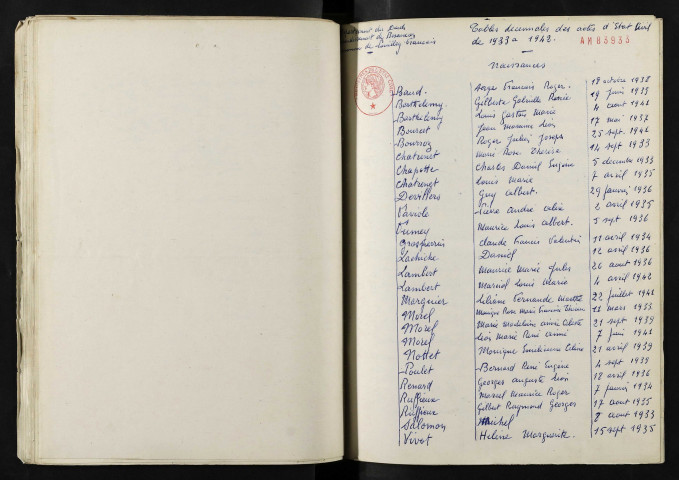 Département du Doubs
Arrondissement de Besançon
Commune de
Tables décennales des actes d'Etat Civil
de 1933 à 1942.
AMB3933
Naissances
Baud. Serge François Roger. 18 octobre 1938
Barthelemy Gilberte Gabrielle Renée 19 juin 1935
Barthelemy Louis Gaston Marie 4 aout 1941
Bourset Jean Léon 17 mai 1937
Roger Julien Joseph 25 sept. 1941
Chatrenet Marie Rose Thérèse 14 sept 1933
Chapotte Charles Daniel Eugène 5 decembre 1933
Chatrenet Louis Marie 7 avril 1935
Dervillers Guy Albert. 29 janvier 1936
André 2 avril 1935
Maurice Louis Albert. 5 sept 1936
Grosperrin Claude Francis Valentin 11 avril 1934
Daniel 12 avril 1936
Lambert Maurice Marie Jules 26 aout 1936
Lambert Marcel Louis Marie 4 avril 1942
Marguier Liliane Fernande Marthe 22 juillet 1941
Morel Monique Rose Marie 11 mars 1933
Morel Marie Madeleine 21 sept 1939
Morel Léon Marie René Aimé 7 juin 1941
Nottet Monique Céline 21 avril 1939
Poulet Bernard René Eugène 4 sept 1939
Renard Georges Auguste Léon 18 avril 1936
Ruffieux Marcel Maurice Roger 7 janvier 1934
Ruffieux Gilbert Raymond Georges 17 aout 1935
Salomon Michel 8 aout 1933
Vivot Hélène Marguerite. 15 sept 1935